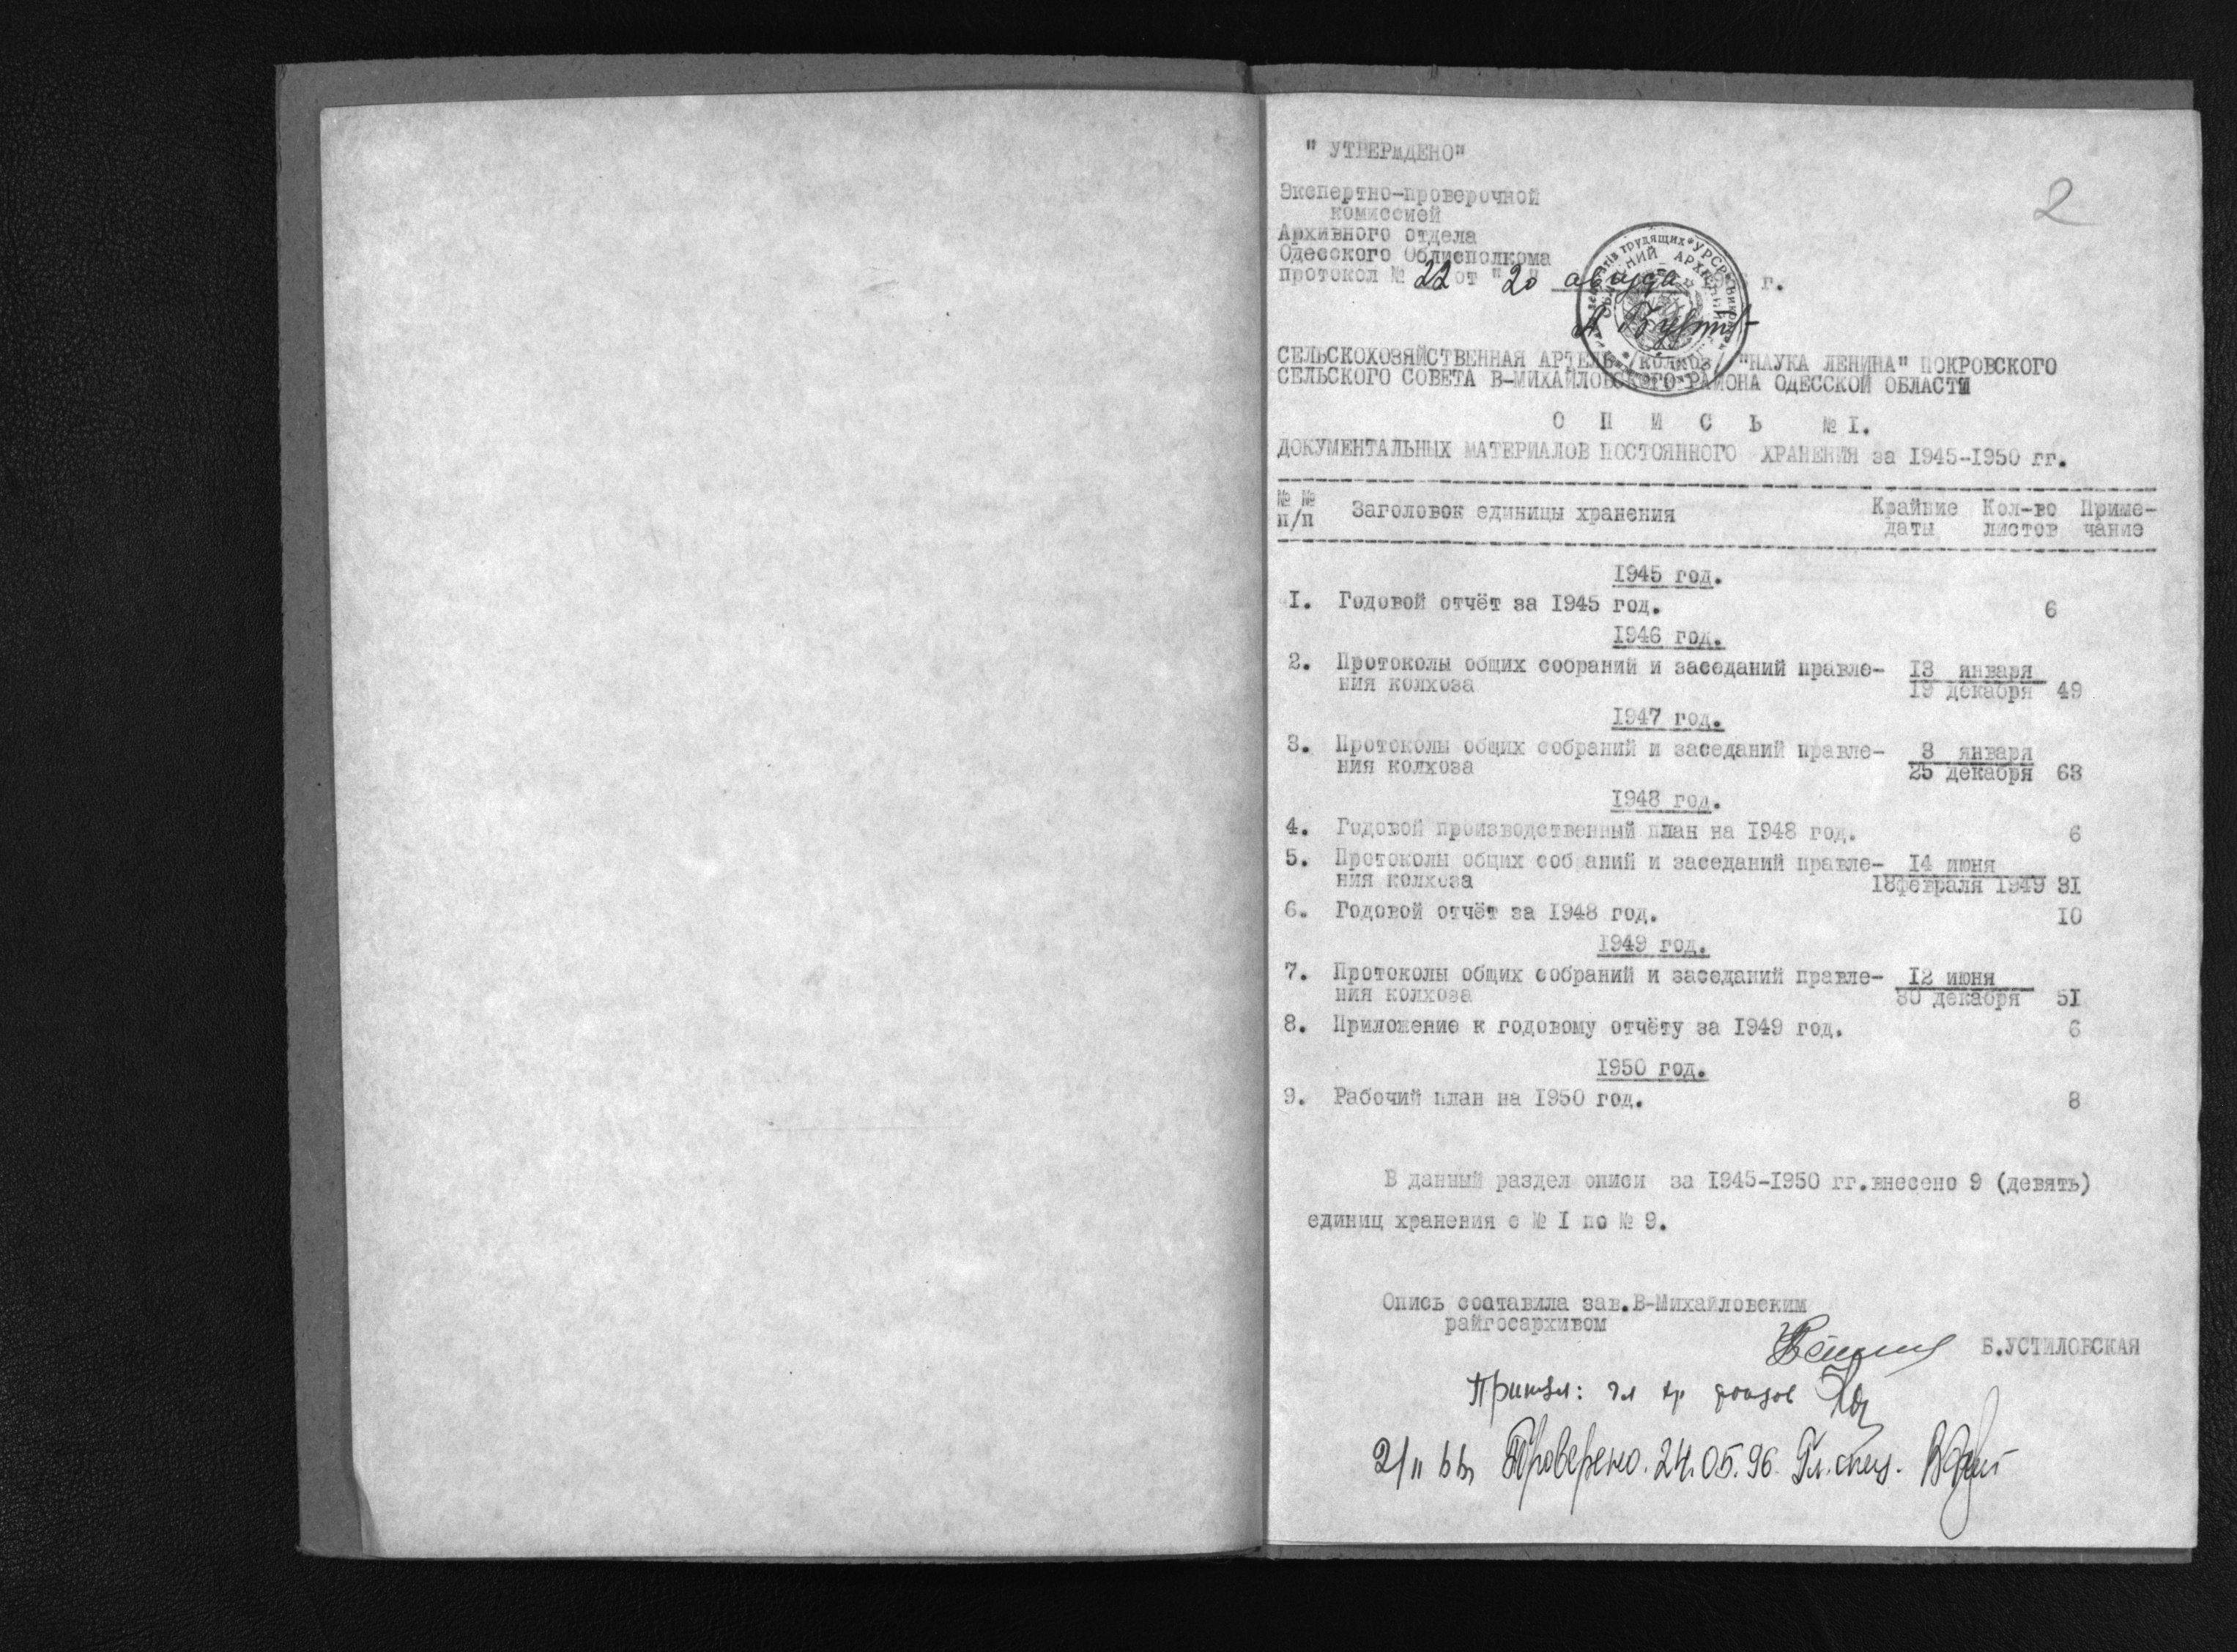 2
" УТВЕРЖДЕНО"
Экспертно-проверочной
комиссией
Архивного отдела
Одесского Облисполкома
протокол № 22 от "20" августа г.
СЕЛЬСКОХОЗЯЙСТВЕННАЯ АРТЕЛЬ /колхоз/ "НАУКА ЛЕНИНА" ПОКРОВСКОГО
СЕЛЬСКОГО СОВЕТА В-МИХАЙЛОВСКОГО РАЙОНА ОДЕССКОЙ ОБЛАСТИ
О П И С Ь № I.
ДОКУМЕНТАЛЬНЫХ МАТЕРИАЛОВ ПОСТОЯННОГО ХРАНЕНИЯ за I945-I950 гг.
№ № Заголовок единицы хранения Крайние Кол-во Приме-
п/п даты листов чание
I945 год.
I. Годовой отчёт за I945 год. 6
I946 год.
2. Протоколы общих собраний и заседаний правле- I3 января
ния колхоза I9 декабря 49
I947 год.
3. Протоколы общих собраний и заседаний правле- 3 января
ния колхоза 25 декабря 63
I948 год.
4. Годовой производственный план на I948 год. 6
5. Протоколы общих соб аний и заседаний правле- I4 июня
ния колхоза I8февраля I949 3I
6. Годовой отчёт за I948 год. I0
I949 год.
7. Протоколы общих собраний и заседаний правле- I2 июня
ния колхоза 30 декабря 5I
8. Приложение к годовому отчёту за I949 год. 6
I950 год.
9. Рабочий план на I950 год. 8
В данный раздел описи за I945-I950 гг.внесено 9 (девять)
единиц хранения с № I по № 9.
Опись составила зав.В-Михайловским
райгосархивом
Б.УСТИЛОВСКАЯ
фондов
Проверено. 24.05.96. Гл. спец.